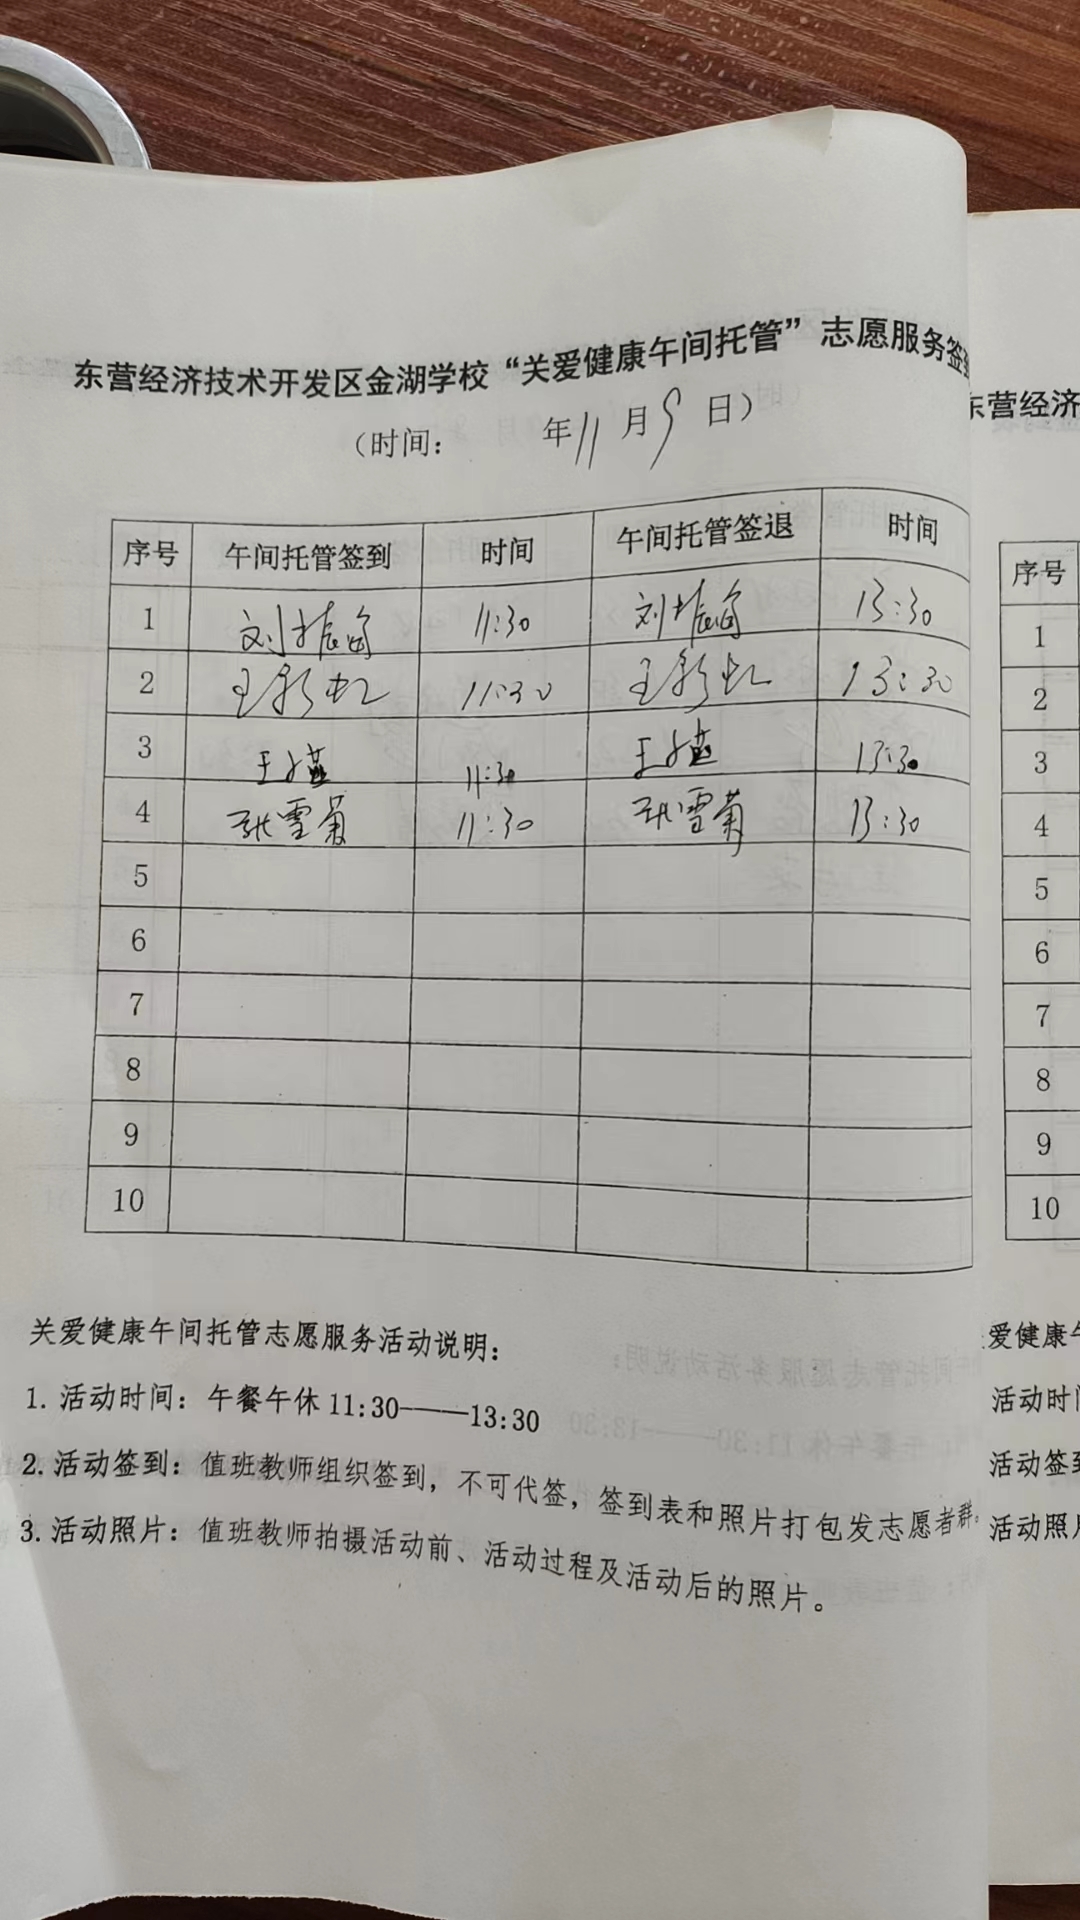 东营经济技术开发区金湖学校“关爱健康午间托管”志愿服务签到
(时间: 年11月9日)
序号 午间托管签到 时间 午间托管签退 时间
1 刘振 11:30 刘振 13:30
2 王彩虹 11:30 王彩虹 13:30
3 王 11:30 王 13:30
4 张雪菊 11:30 张雪菊 13:30
5
6
7
8
9
10
关爱健康午间托管志愿服务活动说明:
1. 活动时间: 午餐午休 11:30——13:30
2. 活动签到: 值班教师组织签到, 不可代签, 签到表和照片打包发志愿者群。
3. 活动照片: 值班教师拍摄活动前、活动过程及活动后的照片。
东营经济
序号
1
2
3
4
5
6
7
8
9
10
爱健康午
活动时间
活动签到
活动照片